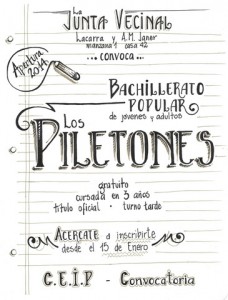 La JUNTA VECINAL
Lacarra y A.M. Janer
manzana 1 casa 42
... convoca ...
Apertura 2014
BACHILLERATO
POPULAR
de jovenes y adultos
LOS
PILETONES
gratuito
cursada en 3 años
título oficial - turno tarde
ACERCATE a inscribirte
desde el 15 de Enero
C.E.I.P - Convocatoria